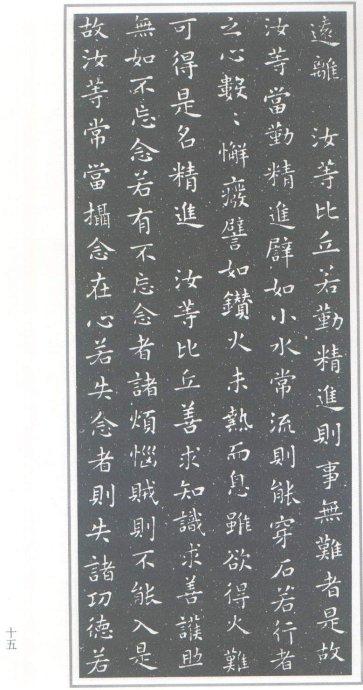 遠離　汝等比丘若勤精進則事無難者是故
汝等當勤精進辟如小水常流則能穿石若行者
之心數〻懈癈譬如鑽火未熱而息雖欲得火難
可得是名精進　汝等比丘善求知識求善護助
無如不忘念若有不忘念者諸煩惱賊則不能入是
故汝等常當攝念在心若失念者則失諸功德若
十五